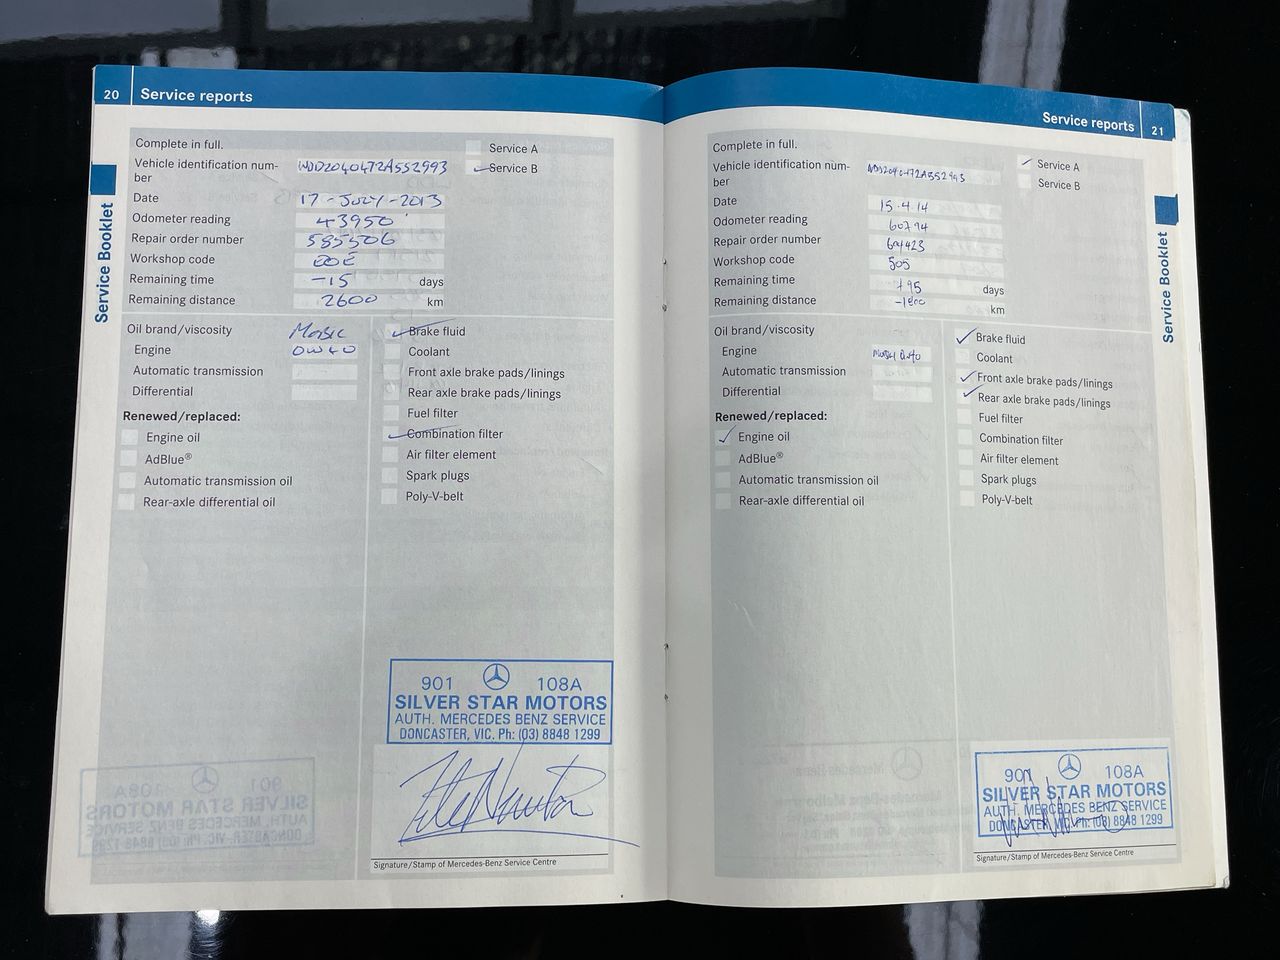 20 Service reports
Service Booklet
Complete in full.
Service A
Vehicle identification num-
ber
WDD2040472A552993
Service B
Date 17-JULY-2013
Odometer reading 43950
Repair order number 585506
Workshop code
Remaining time -15 days
Remaining distance 2600 km
Oil brand/viscosity
Engine 0W40
Automatic transmission
Differential
Renewed/replaced:
Engine oil
AdBlue®
Automatic transmission oil
Rear-axle differential oil
Brake fluid
Coolant
Front axle brake pads/linings
Rear axle brake pads/linings
Fuel filter
Combination filter
Air filter element
Spark plugs
Poly-V-belt
901 108A
SILVER STAR MOTORS
AUTH. MERCEDES BENZ SERVICE
DONCASTER, VIC. Ph: (03) 8848 1299
Signature/Stamp of Mercedes-Benz Service Centre
Service reports 21
Service Booklet
Complete in full.
Service A
Vehicle identification num-
ber
WDD2040472A552993
Service B
Date 15.4.14
Odometer reading 60794
Repair order number 604423
Workshop code 505
Remaining time +95 days
Remaining distance -1800 km
Oil brand/viscosity
Engine
Automatic transmission
Differential
Renewed/replaced:
Engine oil
AdBlue®
Automatic transmission oil
Rear-axle differential oil
Brake fluid
Coolant
Front axle brake pads/linings
Rear axle brake pads/linings
Fuel filter
Combination filter
Air filter element
Spark plugs
Poly-V-belt
901 108A
SILVER STAR MOTORS
AUTH. MERCEDES BENZ SERVICE
DONCASTER, VIC. Ph: (03) 8848 1299
Signature/Stamp of Mercedes-Benz Service Centre